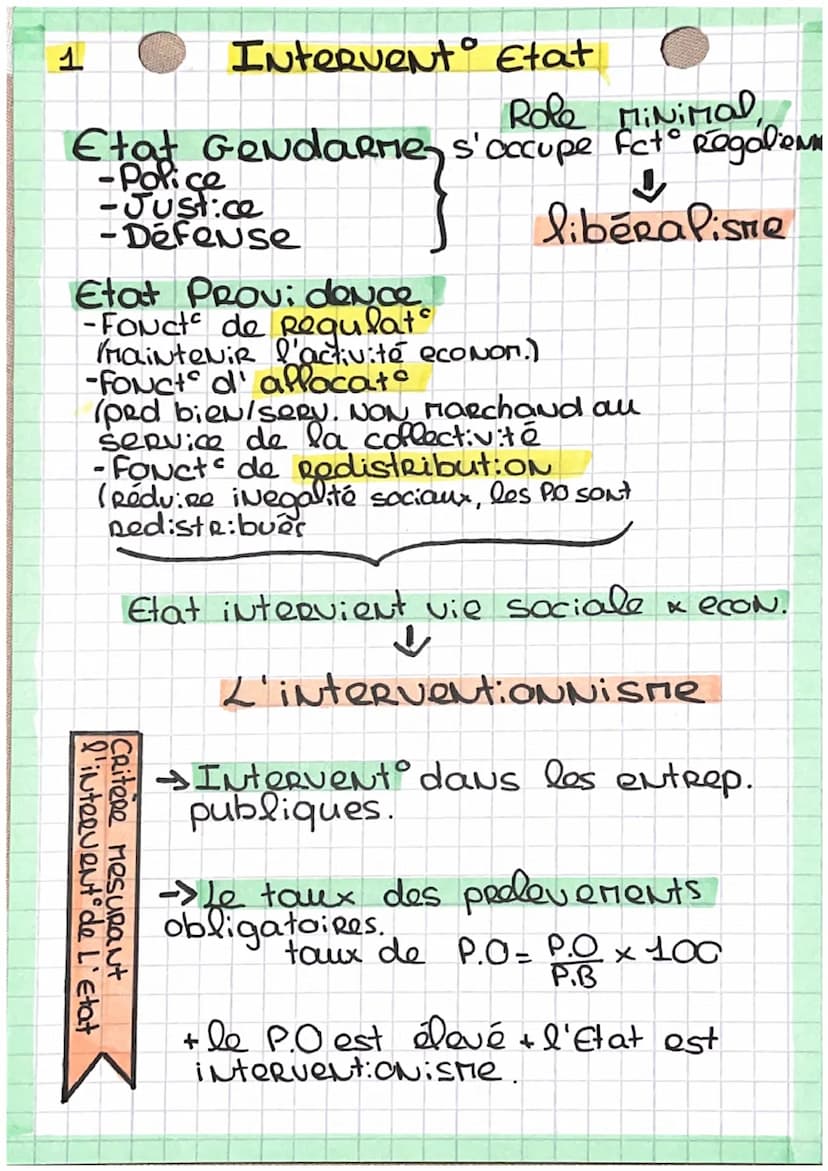 1
Intervent° Etat
Role minimal,
Etat Gendarme s'occupe Fct° Régalienn
- Police
- Justice
- Défense
↓
libéralisme
Etat Providence
- Fonct° de Régulat°
(maintenir l'activité econom.)
- fonct° d'allocat°
(prd bien/serv. Non marchand au
service de la collectivité
- Fonct° de Redistribution
(Réduire inegalité sociaux, les PO sont
redistribués
Etat intervient vie sociale & econ.
↓
L'interventionnisme
Critère mesurant
l'intervent° de L'Etat
→ Intervent° dans les entrep.
publiques.
→ Le taux des prelevements
obligatoires.
taux de P.O = P.O/P.B x 100
+ le P.O est élevé + l'Etat est
interventionisme.